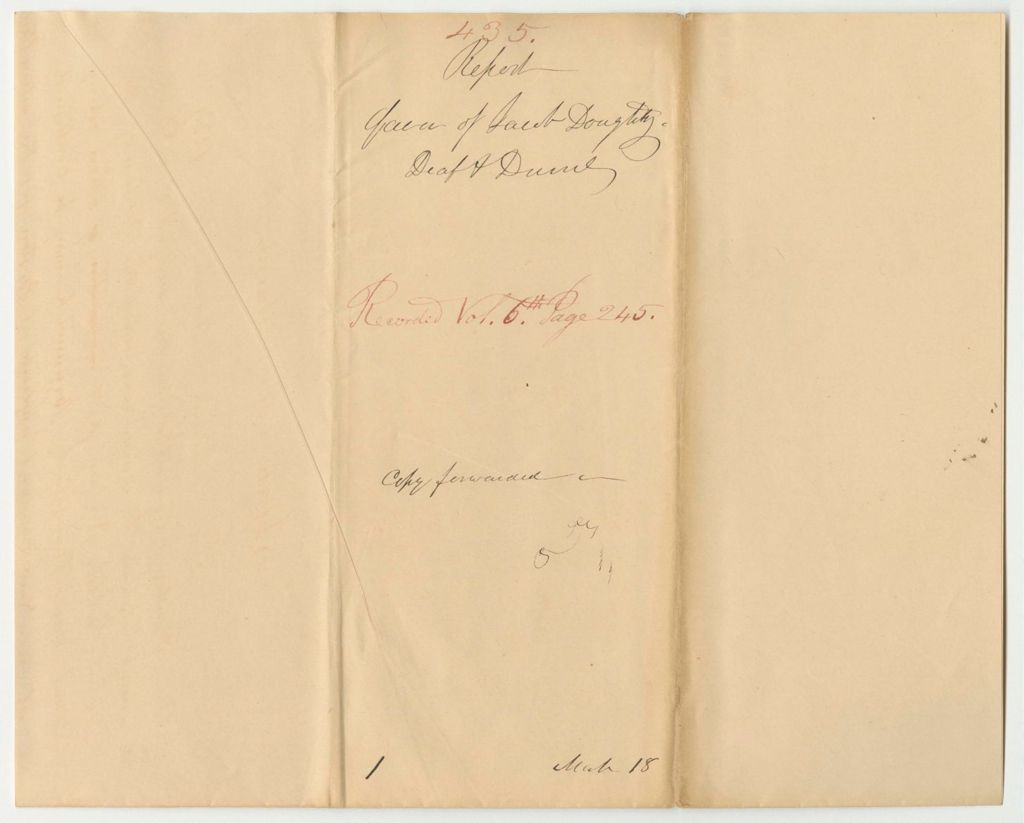 435.
Report
favor of Jacob Doughty.
Deaf & Dumb
Recorded Vol. 6.th Page 245.
Copy forwarded
1
March 18